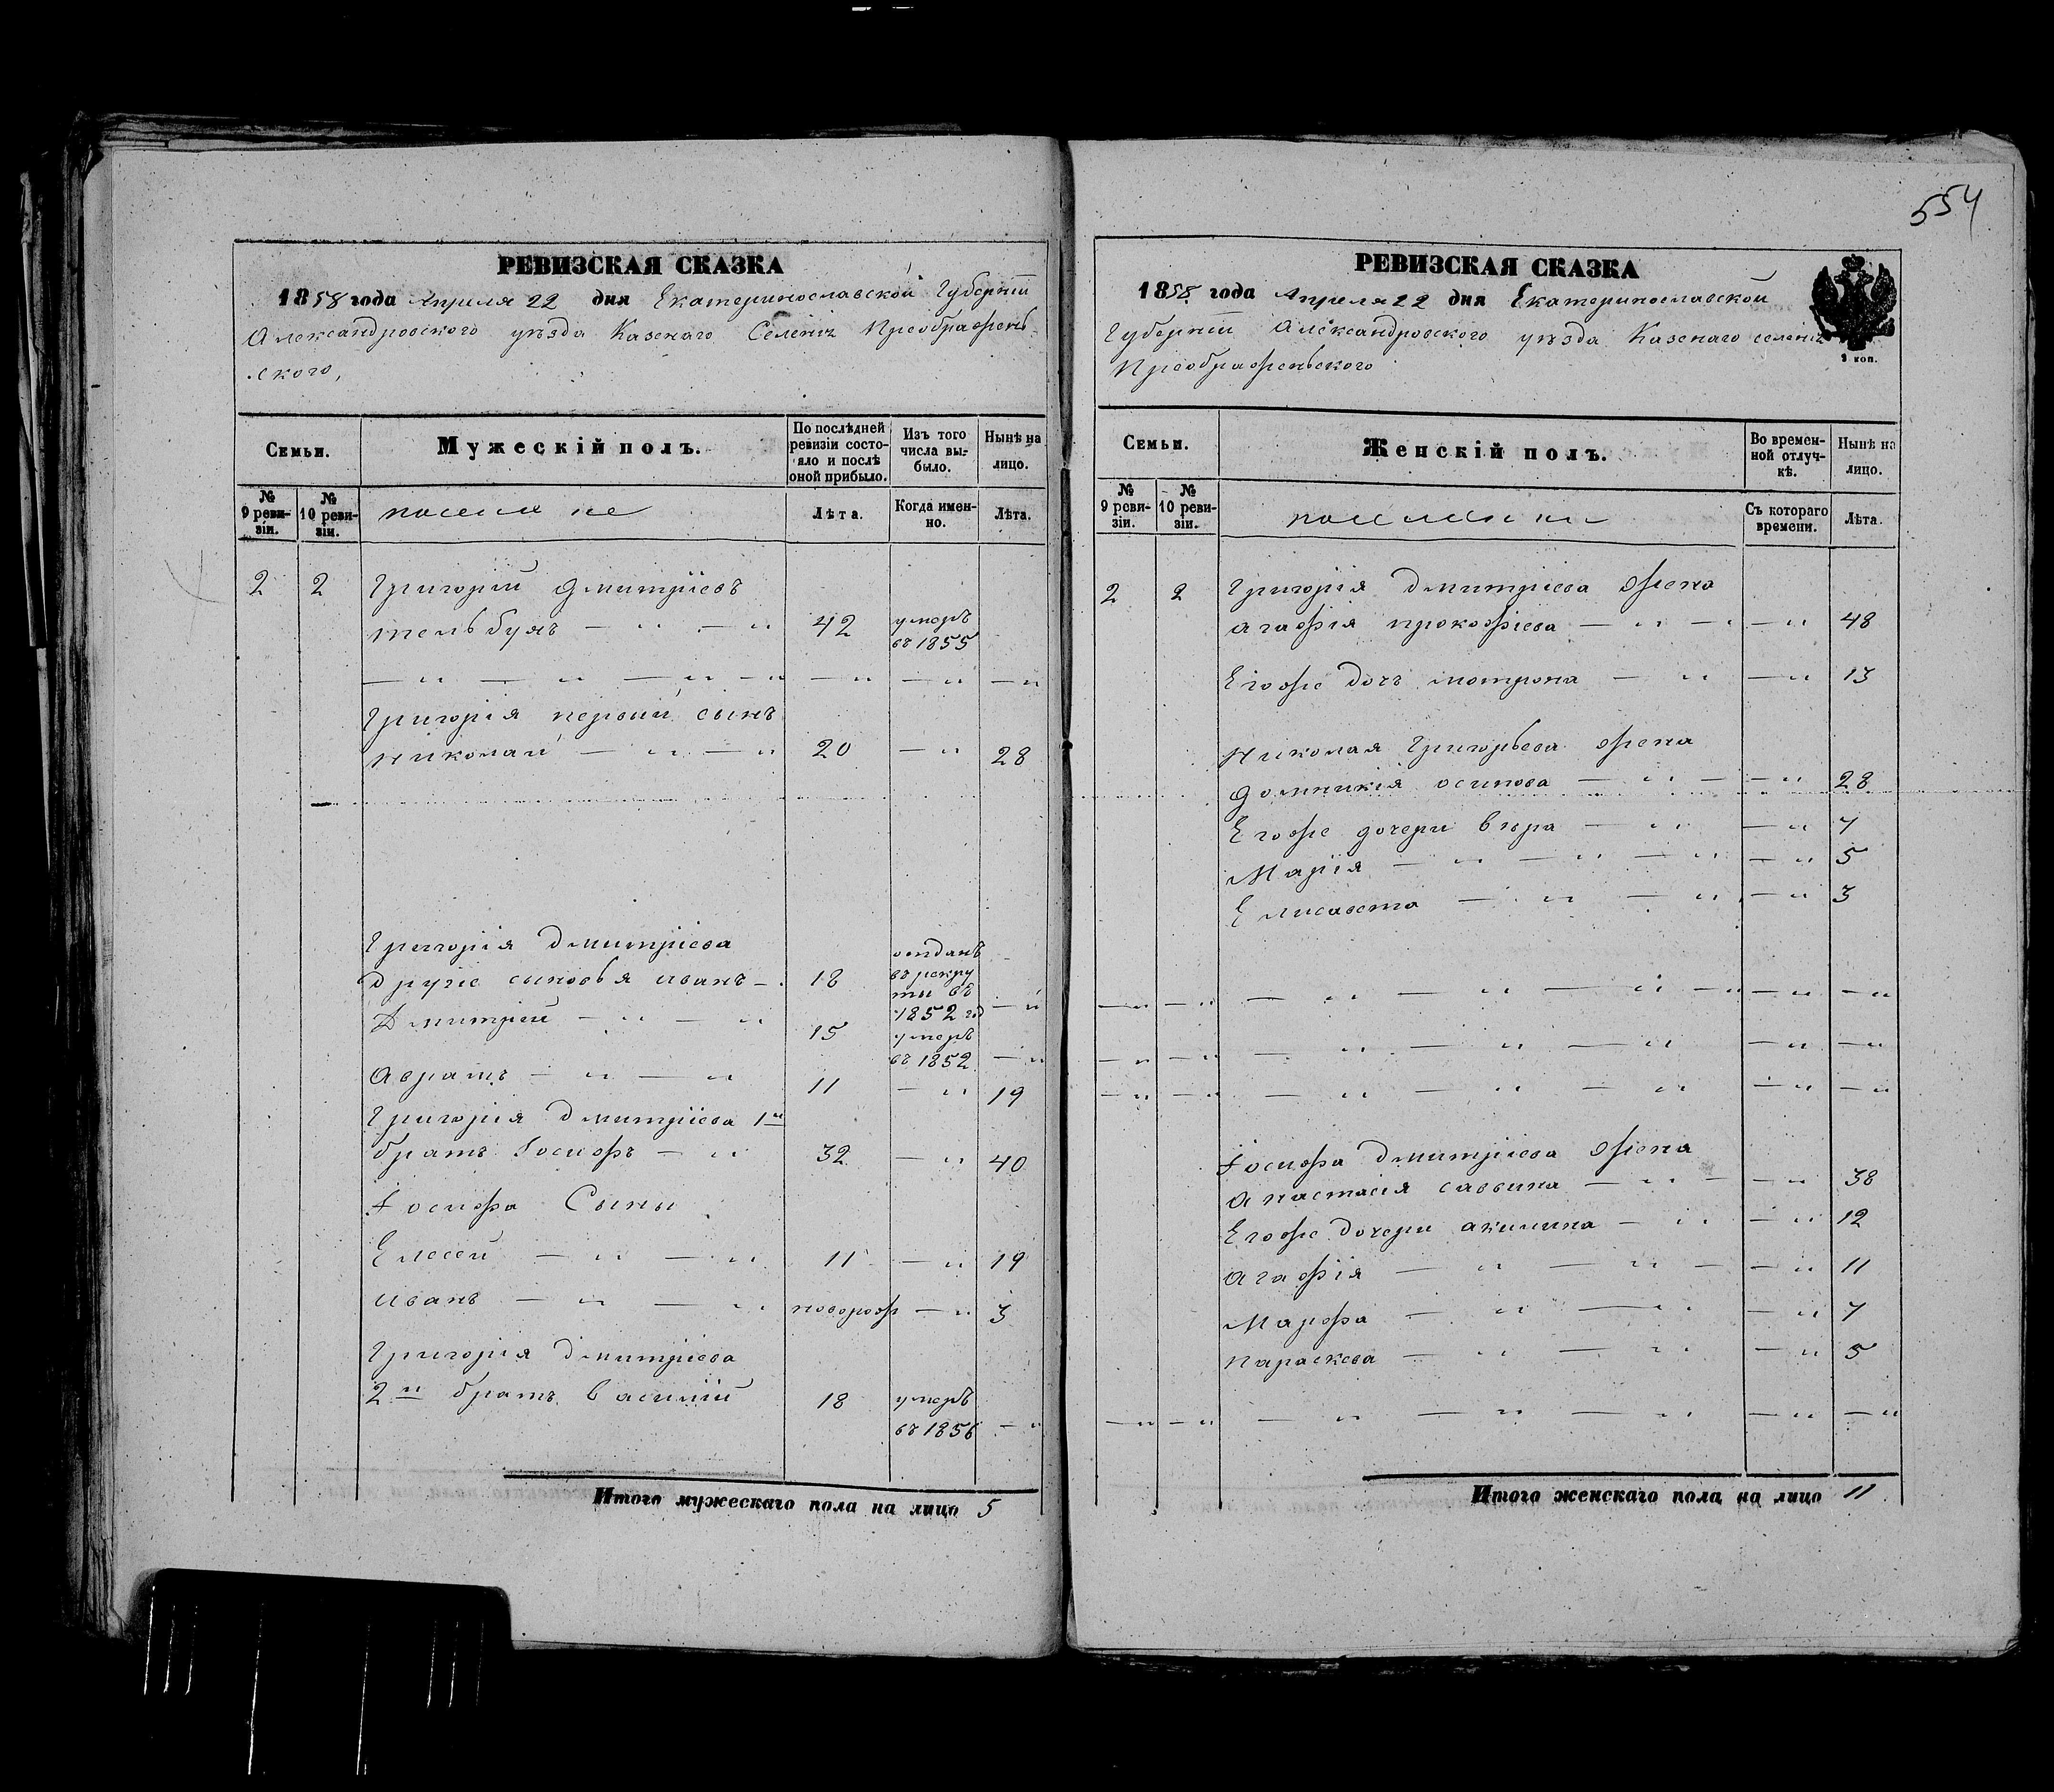 554
РЕВИЗСКАЯ СКАЗКА
1858 года Апреля 22 дня Екатеринославской Губернiи
Александровского уѣзда Казенаго Селенiя Преображень-
ского,
Семьи.
Мужескiй полъ.
По послѣдней ревизiи состояло и послѣ оной прибыло.
Изъ того числа выбыло.
Нынѣ на лицо.
№ 9 ревизiи.
№ 10 ревизiи.
Лѣта.
Когда именно.
Лѣта.
2 2 Григорiй Дмитрiевъ
42 умеръ
въ 1855
Григорiя первый сынъ
Николай — „ — „ 20 — „ 28
Григорiя Дмитрiева
другiе сыновья Иванъ — 18 отданъ
въ рекру
ты въ
1852 год — „
Дмитрiй — „ — „ 15 умеръ
въ 1852 — „
Аврамъ — „ — „ 11 — „ 19
Григорiя Дмитрiева 1й
братъ Iосифъ — „ 32 — „ 40
Iосифа Сыны
Елесей — „ — „ 11 — „ 19
Иванъ — „ — „новорож — „ 3
Григорiя Дмитрiева
2й братъ Василiй 18 умеръ
въ 1856 — „
Итого мужескаго пола на лицо 5
РЕВИЗСКАЯ СКАЗКА
1858 года Апреля 22 дня Екатеринославской
Губернiи Александровского уѣзда Казенаго селенiя
Преображеньского
Семьи.
Женскiй полъ.
Во временной отлучкѣ.
Нынѣ на лицо.
№ 9 ревизiи.
№ 10 ревизiи.
Съ котораго времени.
Лѣта.
2 2 Григорiя Дмитрiева жена
Агафiя Прокофiева — „ — — „ 48
Егоже дочъ Мотрона — „ — „ 13
Николая Григорьева жена
Домникiя Осипова — „ — — „ 28
Егоже дочери Вѣра — „ — „ 7
Марiя — „ — „ — „ — „ 5
Елисавета — „ — „ — „ 3
Iосифа Дмитрiева жена
Анастасiя Саввина — „ — — „ 38
Егоже дочери Акилина — „ — „ 12
Агафiя — „ — „ — — „ 11
Марфа — „ — „ — „ 7
Параскева — „ — „ — „ 5
Итого женскаго пола на лицо 11